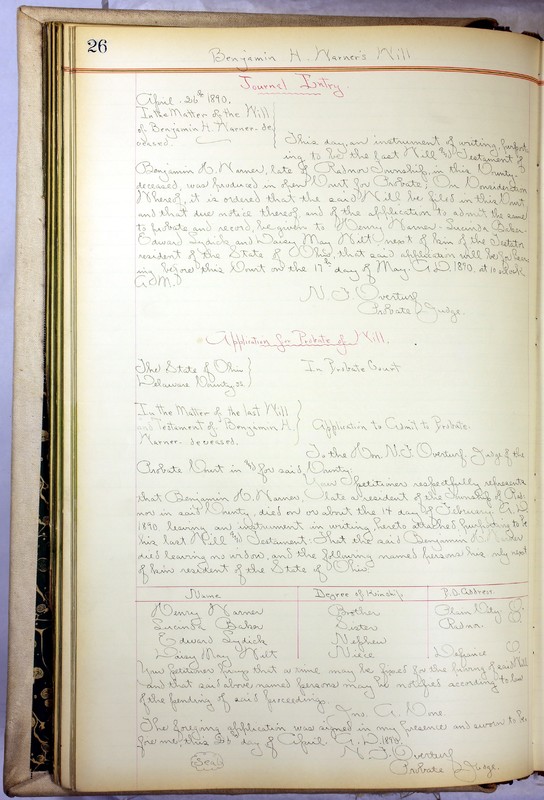 26
Benjamin H. Warner's Will
Journal Entry.
April - 26th 1890.
In the Matter of the Will
of Benjamin H. Warner - de
ceased.
This day, an instrument of writing, purport
ing to be the last Will & Testament of
Benjamin H. Warner, late of Radnor Township, in this County -
deceased, was produced in open Court for Probate; On Consideration
Whereof, it is ordered that the said Will be filed in this Court,
and that due notice thereof and of the application to admit the same
to probate and record, be given to Henry Warner - Lucinda Baker -
Edward Lydick and Daisey May Wilt next of kin of the testator
resident of the State of Ohio, that said application will be for hear
ing before this Court on the 17th day of May - A.D. 1890, at 10 o'clock
A.M.
N. F. Overturf
Probate Judge.
Application for Probate of Will.
The State of Ohio
Delaware County ss
In Probate Court
In the Matter of the last Will
and Testament of Benjamin H.
Warner - deceased.
Application to Admit to Probate.
To the Hon. N. F. Overturf, Judge of the
Probate Court in & for said County:
Your Petitioner respectfully represents
that Benjamin H. Warner, late a resident of the Township of Rad
nor in said County, died on or about the 14 day of February A.D.
1890, leaving an instrument in writing hereto attached purporting to be
his last Will & Testament. That the said Benjamin H. Warner
died leaving no widow, and the following named persons his only next
of kin resident of the State of Ohio
Name Degree of Kinship P.O. Address
Henry Warner Brother Plain City O.
Lucinda Baker Sister Radnor.
Edward Lydick Nephew
Daisey May Wilt Niece Defiance O.
Your petitioner prays that a time may be fixed for the proving of said Will
and that said above named persons may be notified according to law
of the pending of said proceeding.
Jno. A. Cone.
The foregoing application was signed in my presence and sworn to be
fore me, this day of April A.D. 1890.
N. F. Overturf
Seal
Probate Judge.